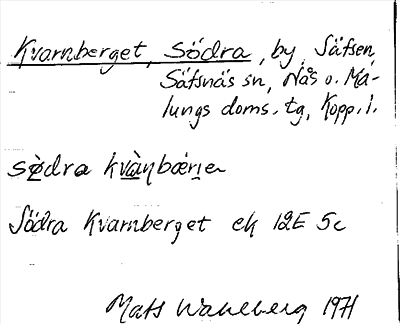 Kvarnberget, Södra, by, Säfsen,
Säfsnäs sn, Nås o. Ma-
lungs doms. tg, Kopp. l.
sö̀dra kvàṇbærjen
Södra Kvarnberget ek 12E 5c
Mats Wahlberg 1971